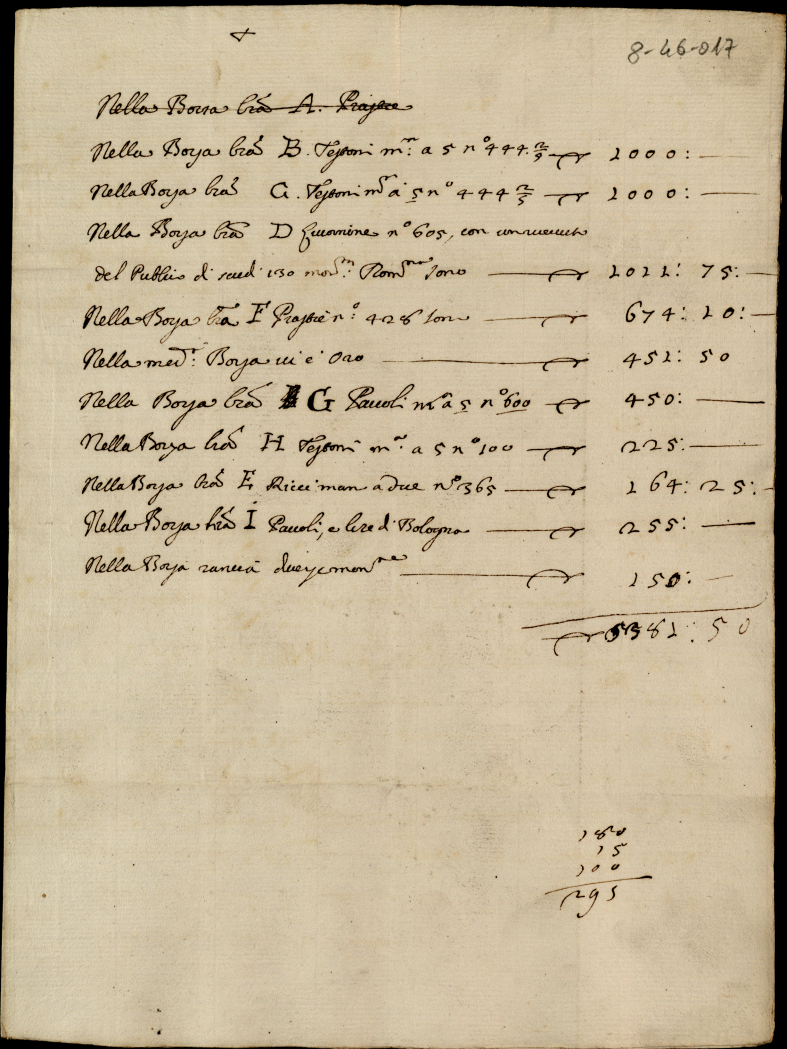 8-46-017
Nella Borsa lra A. Piastre
Nella Borsa lra B. Testoni m.ri a 5 n.o 444 2/5 1000:
Nella Borsa lra C. Testoni m.ri a 5 n.o 444 2/5 1000:
Nella Borsa lra D n.o 605, con
del Publico di scudi 130 mon.ta Rom.na sono 1011: 75:
Nella Borsa lra F Piastre n.o 428 sono 674: 10:
Nella med.a Borsa vi è Oro 451: 50
Nella Borsa lra G Pauoli m.ri a 5 n.o 600 450:
Nella Borsa lra H Testoni m.ri a 5 n.o 100 225:
Nella Borsa lra E Ricci man a due n.o 365 164: 25:
Nella Borsa lra I Pauoli, e lire di Bologna 255:
Nella Borsa 150:
5381: 50
180
15
100
295